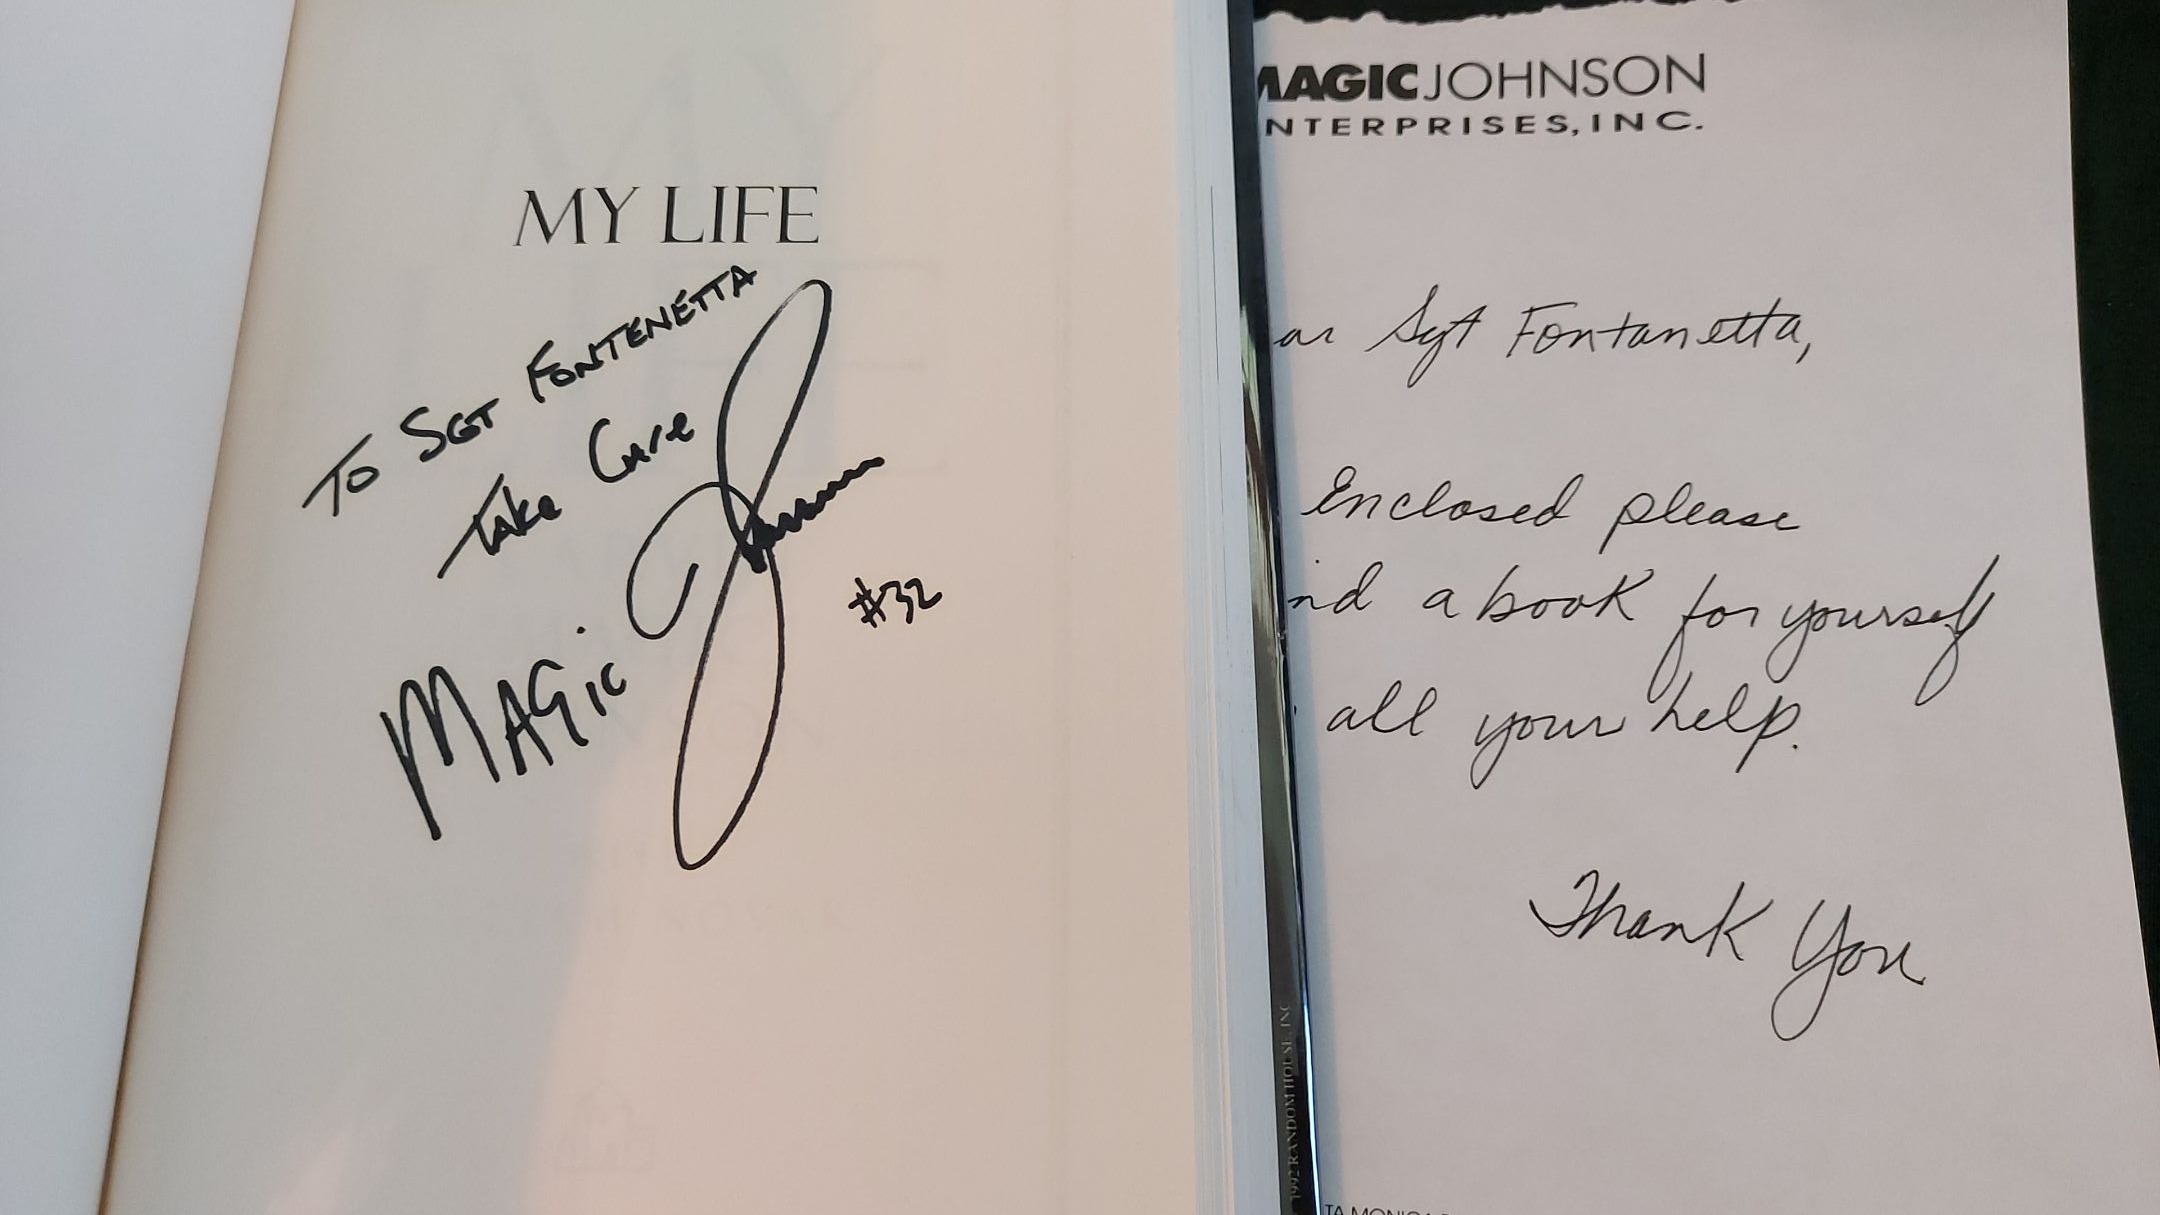 MY LIFE
TO SGT FONTENETTA
Take Care
MAGiC Johnson
#32
1992 RANDOM HOUSE, INC
MAGICJOHNSON
NTERPRISES, INC.
ar Sgt Fontanetta,
Enclosed please
nd a book for yourself
all your help.
Thank You